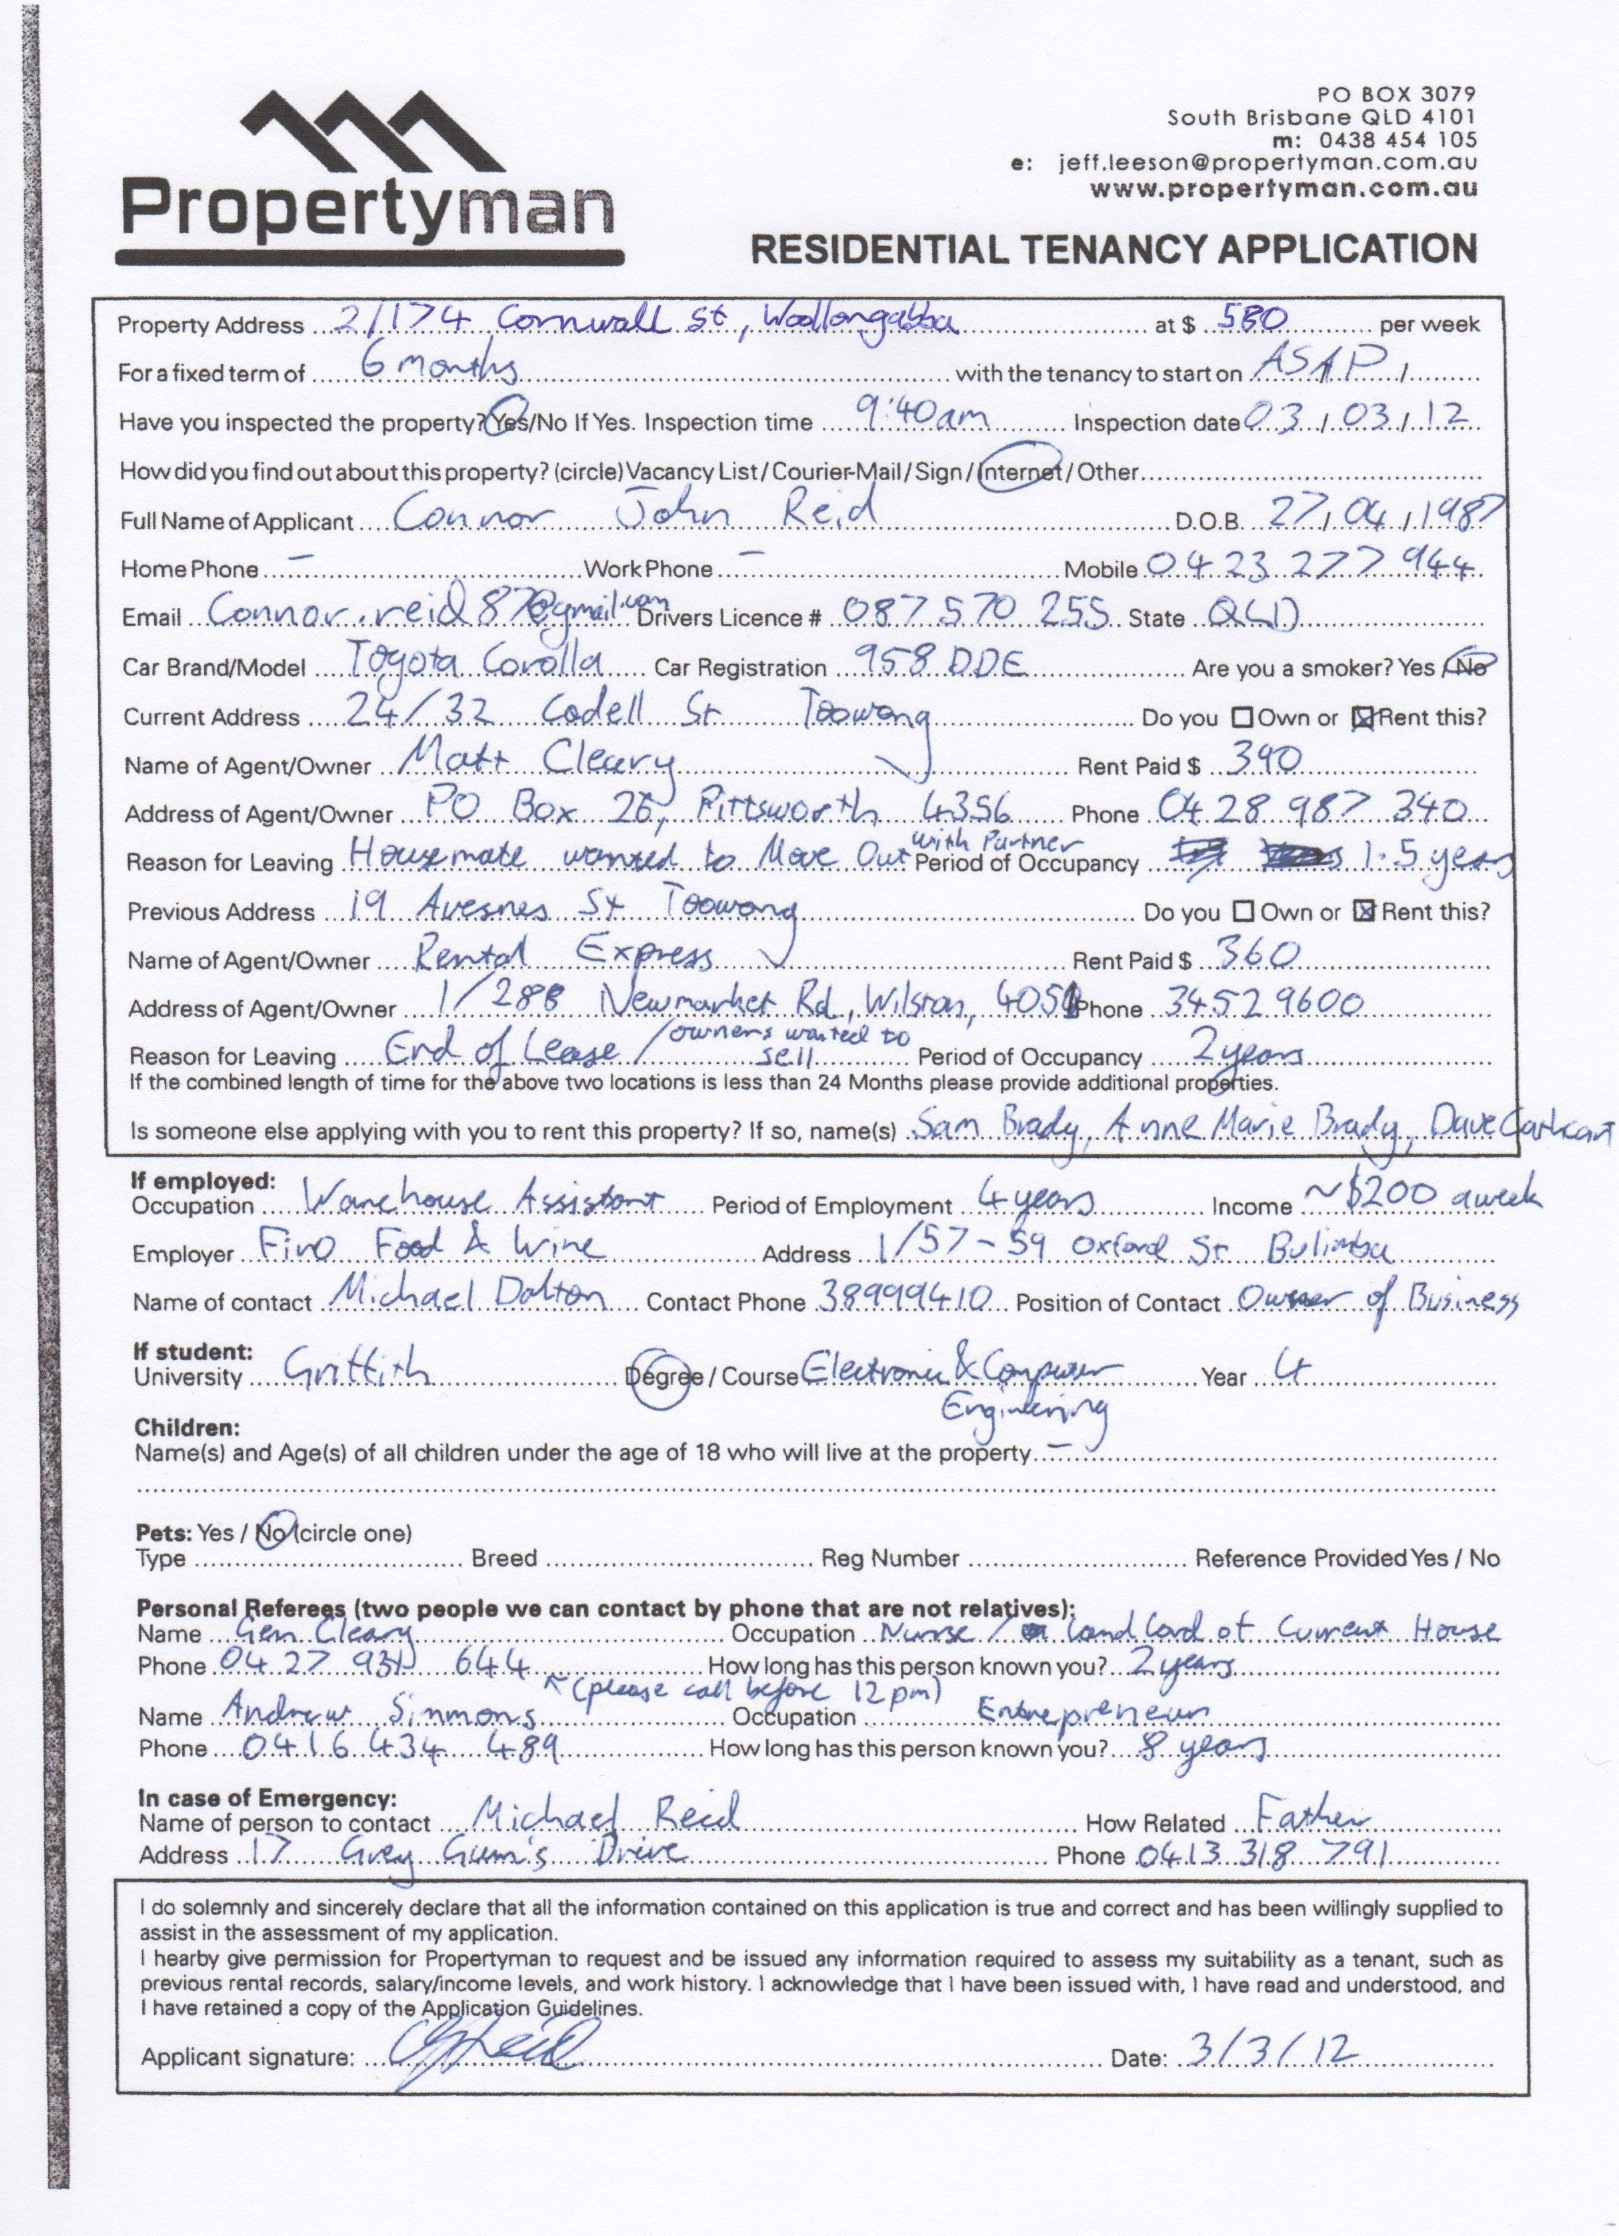 Propertyman
PO BOX 3079
South Brisbane QLD 4101
m: 0438 454 105
e: jeff.leeson@propertyman.com.au
www.propertyman.com.au
RESIDENTIAL TENANCY APPLICATION
Property Address 2/174 Cornwall St, Woollongabba at $ 580 per week
For a fixed term of 6 months with the tenancy to start on ASAP / /
Have you inspected the property? Yes/No If Yes. Inspection time 9:40am Inspection date 03 / 03 / 12
How did you find out about this property? (circle) Vacancy List / Courier-Mail / Sign / Internet / Other
Full Name of Applicant Connor John Reid D.O.B. 27 / 04 / 1987
Home Phone – Work Phone – Mobile 0423 277 944
Email Connor.reid87@gmail.com Drivers Licence # 087 570 255 State QLD
Car Brand/Model Toyota Corolla Car Registration 958 DDE Are you a smoker? Yes / No
Current Address 24/32 Cadell St Toowong Do you Own or Rent this?
Name of Agent/Owner Matt Cleary Rent Paid $ 390
Address of Agent/Owner PO Box 26, Pittsworth 4356 Phone 0428 987 340
Reason for Leaving Housemate wanted to Move Out with Partner Period of Occupancy 1.5 years
Previous Address 19 Avesnes St Toowong Do you Own or Rent this?
Name of Agent/Owner Rental Express Rent Paid $ 360
Address of Agent/Owner 1/288 Newmarket Rd, Wilston, 4051 Phone 3452 9600
Reason for Leaving End of Lease / owners wanted to sell Period of Occupancy 2 years
If the combined length of time for the above two locations is less than 24 Months please provide additional properties.
Is someone else applying with you to rent this property? If so, name(s) Sam Brady, Anne Marie Brady, Dave Carthcart
If employed:
Occupation Warehouse Assistant Period of Employment 4 years Income ~$200 a week
Employer Fino Food & Wine Address 1/57-59 Oxford St Bulimba
Name of contact Michael Dalton Contact Phone 38999410 Position of Contact Owner of Business
If student:
University Griffith Degree / Course Electronic & Computer Engineering Year 4
Children:
Name(s) and Age(s) of all children under the age of 18 who will live at the property –
Pets: Yes / No (circle one)
Type Breed Reg Number Reference Provided Yes / No
Personal Referees (two people we can contact by phone that are not relatives):
Name Gen Cleary Occupation Nurse / Land Lord of Current House
Phone 0427 644 How long has this person known you? 2 years
(please call before 12pm)
Name Andrew Simmons Occupation Entrepreneur
Phone 0416 434 489 How long has this person known you? 8 years
In case of Emergency:
Name of person to contact Michael Reid How Related Father
Address 17 Grey Gum's Drive Phone 0413 318 791
I do solemnly and sincerely declare that all the information contained on this application is true and correct and has been willingly supplied to
assist in the assessment of my application.
I hearby give permission for Propertyman to request and be issued any information required to assess my suitability as a tenant, such as
previous rental records, salary/income levels, and work history. I acknowledge that I have been issued with, I have read and understood, and
I have retained a copy of the Application Guidelines.
Applicant signature: CJReid Date: 3/3/12